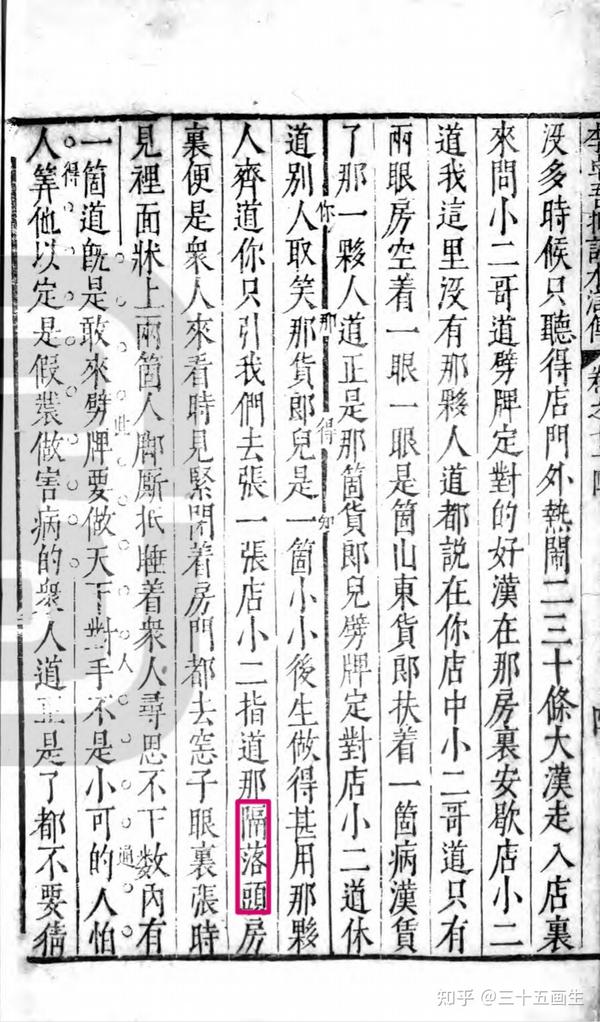 李卓吾批評水滸傳 卷之七十四 四
沒多時候只聽得店門外熱鬧二三十條大漢走入店裏
來問小二哥道劈牌定對的好漢在那房裏安歇店小二
道我這里沒有那夥人道都說在你店中小二哥道只有
兩眼房空着一眼一眼是箇山東貨郎扶着一箇病漢賃
了那一夥人道正是那箇貨郎兒劈牌定對店小二道休
你那得知
道別人取笑那貨郎兒是一箇小小後生做得甚用那夥
人齊道你只引我們去張一張店小二指道那隔落頭房
裏便是衆人來看時見緊閉着房門都去窓子眼裏張時
見裡面牀上兩箇人脚厮抵睡着衆人尋思不下數內有
此人通
一箇道旣是敢來劈牌要做天下對手不是小可的人怕
得
人筭他以定是假裝做害病的衆人道正是了都不要猜
知乎 @三十五画生